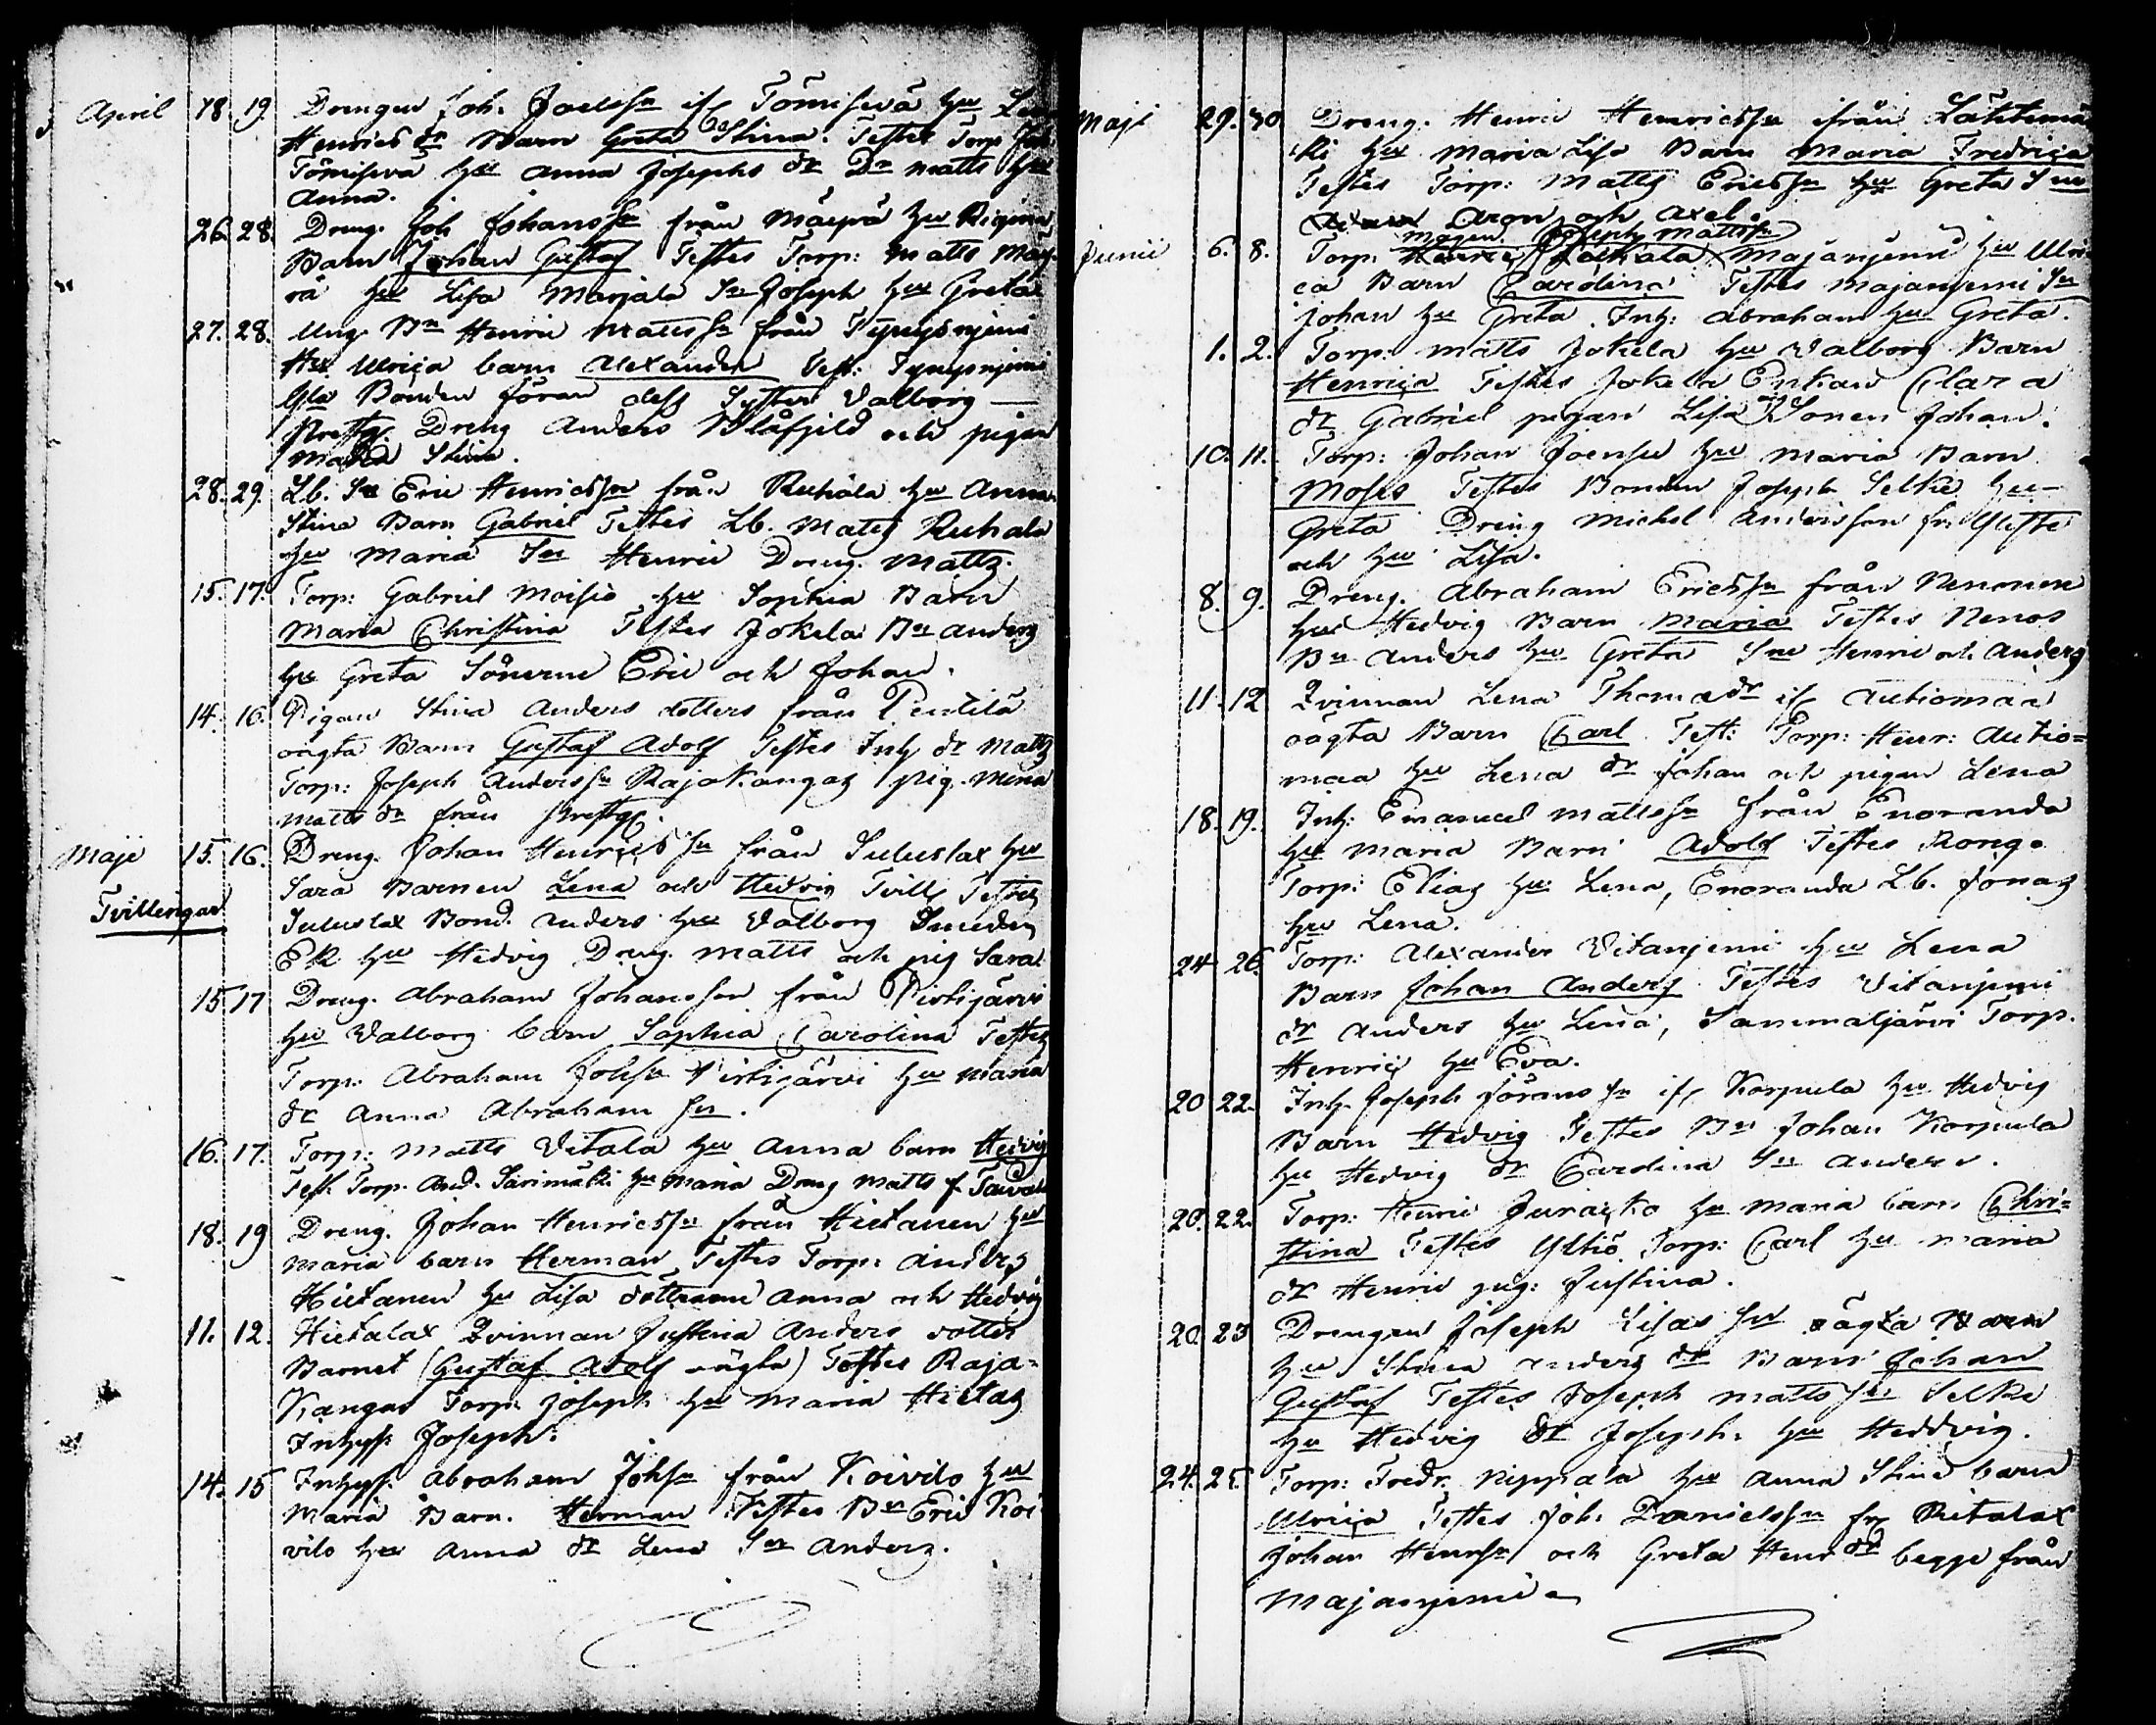 April 18. 19. Drengen Joh. Joelss. if Tömisevä hu
Henricsdr Barn Greta Stina. Testes Torp.
Tömisevä hu Anna Josephs dr Dr Matts hu
Anna.
26. 28. Dreng. Joh Johanss. från Mäyrä hu Regina
Barn Johan Gustaf Testes Torp: Matts Mäy-
rä hu Lisa Marjala Sn Joseph hu Greta
27. 28. Ung. Bn Henric Mattss. från
Hu Ulrica barn Alexander Test:
Gla Bonden Jöran dess Syster Valborg —
Prestg. Dreng Anders Blåfjeld och pigan
Maria Stina.
28. 29. Lb. Sn Eric Henricss. från Ruhala hu Anna
Stina Barn Gabriel Testes Lb. Matts Ruhala
hu Maria Sn Henric Dreng. Matts.
15. 17. Torp: Gabriel Moisio hu Sophia Barn
Maria Christina Testes Jokela Bn Anders
hu Greta Sönerne Eric och Johan.
14. 16. Pigan Stina Anders dotters från Pentilä
oägta Barn Gustaf Adolf Testes Inh dr Matts
Torp: Joseph Anderss. Rajakangas pig. Mina
Matts dr från Prestg.
Maji 15. 16. Dreng. Johan Henricss. från Luluslax hu
Tvillingar
Sara Barnen Lena och Hedvig Tvill Testes
Luluslax Bond. Anders hu Valborg Smeden
Ek hu Hedvig Dreng. Matts och pig Sara
15 17 Dreng. Abraham Johansson från Pirtijärvi
hu Valborg barn Sophia Carolina Testes
Torp: Abraham Johss. Pirtijärvi hu Maria
dr Anna Abraham sn.
16. 17. Torp: Matts Vitala hu Anna barn Hedvig
Test. Torp. And. Särimäki hu Maria Dreng Matts f.
18. 19 Dreng. Johan Henricss. från Hietanen hu
Maria barn Herman Testes Torp: Anders
Hietanen hu Lisa döttrarne Anna och Hedvig
11. 12. Hietalax Qvinnan Justina Anders dotter
Barnet (Gustaf Adolf oägta) Testes Raja-
Kangas Torp: Joseph hu Maria Hietas
Inhys. Joseph.
14. 15 Inhys. Abraham Johss. från Koivilo hu
Maria Barn. Herman Testes Bn Eric Koi
vilo hu Anna dr Lena Sn Anders.
Maji 29. 30 Dreng. Henric Henricss. ifrån Lähtemä
ki hu Maria Lisa Barn Maria Fredrica
Testes Torp: Matts Ericss. hu Greta Sne
Aron och Axel.
Mågen Joseph Mattss.
Junii 6. 8. Torp: Henric Majanjemi hu Ulri-
ca Barn Carolina Testes Majanjemi Sn
Johan hu Greta. Inh: Abraham hu Greta.
1. 2. Torp: Matts Jokela hu Valborg Barn
Henrica Testes Jokela Enkan Clara
dr Gabriel pigan Lisa Sonen Johan.
10. 11. Torp: Johan Joensu hu Maria Barn
Moses Testes Bonden Joseph Selke hu
Greta Dreng Michel Andersson fr.
och hu Lisa.
8. 9. Dreng. Abraham Ericss. från Nenonen
hu Hedvig Barn Maria Testes Nenos
Bn Anders hu Greta Sne Henric och Anders
11. 12 Qvinnan Lena Thomædr if Autiomaa
oägta Barn Carl Test: Torp: Henr: Autio=
maa hu Lena dr Johan och pigan Lena
18. 19. Inh: Emanuel Mattss. från Enoranda
hu Maria Barn Adolf Testes Kongo
Torp: Elias hu Lena, Enoranda Lb. Jonas
hu Lena.
24 26. Torp: Alexander Vitanjemi hu Lena
Barn Johan Anders Testes Vitanjemi
dr Anders hu Lena, Sammaljärvi Torp.
Henric hu Eva.
20 22. Inh. Joseph Jöranss. if Korpula hu Hedvig
Barn Hedvig Testes Bn Johan Korpula
hu Hedvig dr Carolina Sn Anders.
20. 22. Torp: Henric Jurasko hu Maria barn Chri=
stina Testes Yltiö Torp: Carl hu Maria
dr Henric pig: Justina.
20. 23 Drengen Joseph Lisas sn oägta Barn
hu Stina Anders dr Barn Johan
Gustaf Testes Joseph Mattss. Selke
hu Hedvig dr Joseph. hu Heddvig.
24. 25. Torp: Fredr. Nippala hu Anna Stina barn
Ulrica Testes Joh. Danielss. fr Ritalax
Johan Henrss. och Greta Henr dr begge från
Majanjemi